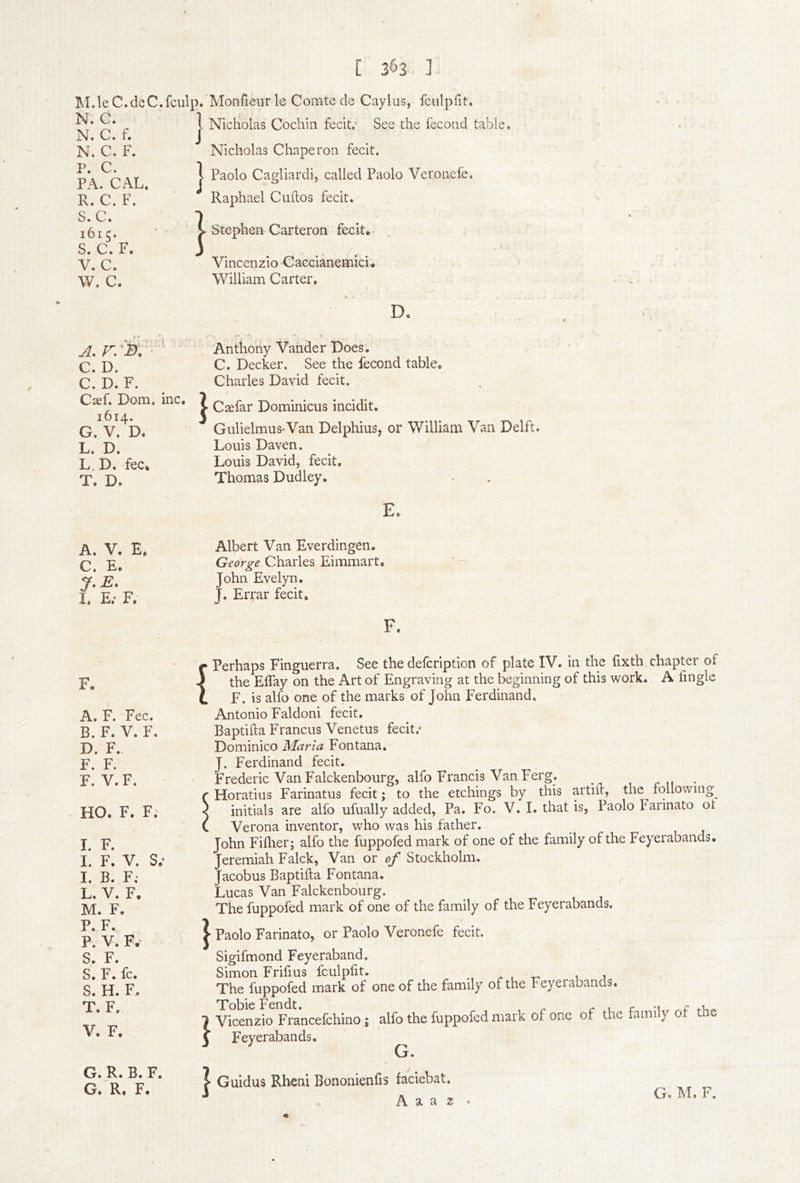 [ 363 ]
M.le C.deC.ſculp. Monſieur le Comte de Caylus, ſculpſit.
N. C.
N. C. f. } Nicholas Cochin fecit. See the ſecond table.
N. C. F. Nicholas Chaperon fecit.
P. C.
PA. CAL. } Paolo Cagliardi, called Paolo Veroneſe.
R. C. F. Raphael Cuſtos fecit.
S. C.
1615. } Stephen Carteron fecit.
S. C. F.
V. C. Vincenzio Caccianemici.
W. C. William Carter.
D.
A. V. D. Anthony Vander Does.
C. D. C. Decker. See the ſecond table.
C. D. F. Charles David fecit.
Cæſ. Dom. inc.
1614. } Cæſar Dominicus incidit.
G. V. D. Gulielmus-Van Delphius, or William Van Delft.
L. D. Louis Daven.
L. D. fec. Louis David, fecit.
T. D. Thomas Dudley.
E.
A. V. E. Albert Van Everdingen.
C. E. George Charles Eimmart.
J. E. John Evelyn.
I. E. F. J. Errar fecit.
F.
{ Perhaps Finguerra. See the deſcription of plate IV. in the ſixth chapter of
F. the Eſſay on the Art of Engraving at the beginning of this work. A ſingle
F. is alſo one of the marks of John Ferdinand.
A. F. Fec. Antonio Faldoni fecit.
B. F. V. F. Baptiſta Francus Venetus fecit.
D. F. Dominico Maria Fontana.
F. F. J. Ferdinand fecit.
F. V. F. Frederic Van Falckenbourg, alſo Francis Van Ferg.
{ Horatius Farinatus fecit; to the etchings by this artiſt, the following
HO. F. F. initials are alſo uſually added, Pa. Fo. V. I. that is, Paolo Farinato of
Verona inventor, who was his father.
I. F. John Fiſher; alſo the ſuppoſed mark of one of the family of the Feyerabands.
I. F. V. S. Jeremiah Falck, Van or of Stockholm.
I. B. F. Jacobus Baptiſta Fontana.
L. V. F. Lucas Van Falckenbourg.
M. F. The ſuppoſed mark of one of the family of the Feyerabands.
P. F.
P. V. F. } Paolo Farinato, or Paolo Veroneſe fecit.
S. F. Sigiſmond Feyeraband.
S. F. ſc. Simon Friſius ſculpſit.
S. H. F. The ſuppoſed mark of one of the family of the Feyerabands.
T. F. Tobie Fendt.
V. F. } Vicenzio Franceſchino; alſo the ſuppoſed mark of one of the family of the
Feyerabands.
G.
G. R. B. F.
G. R. F. } Guidus Rheni Bononienſis faciebat.
A a a 2
G. M. F.